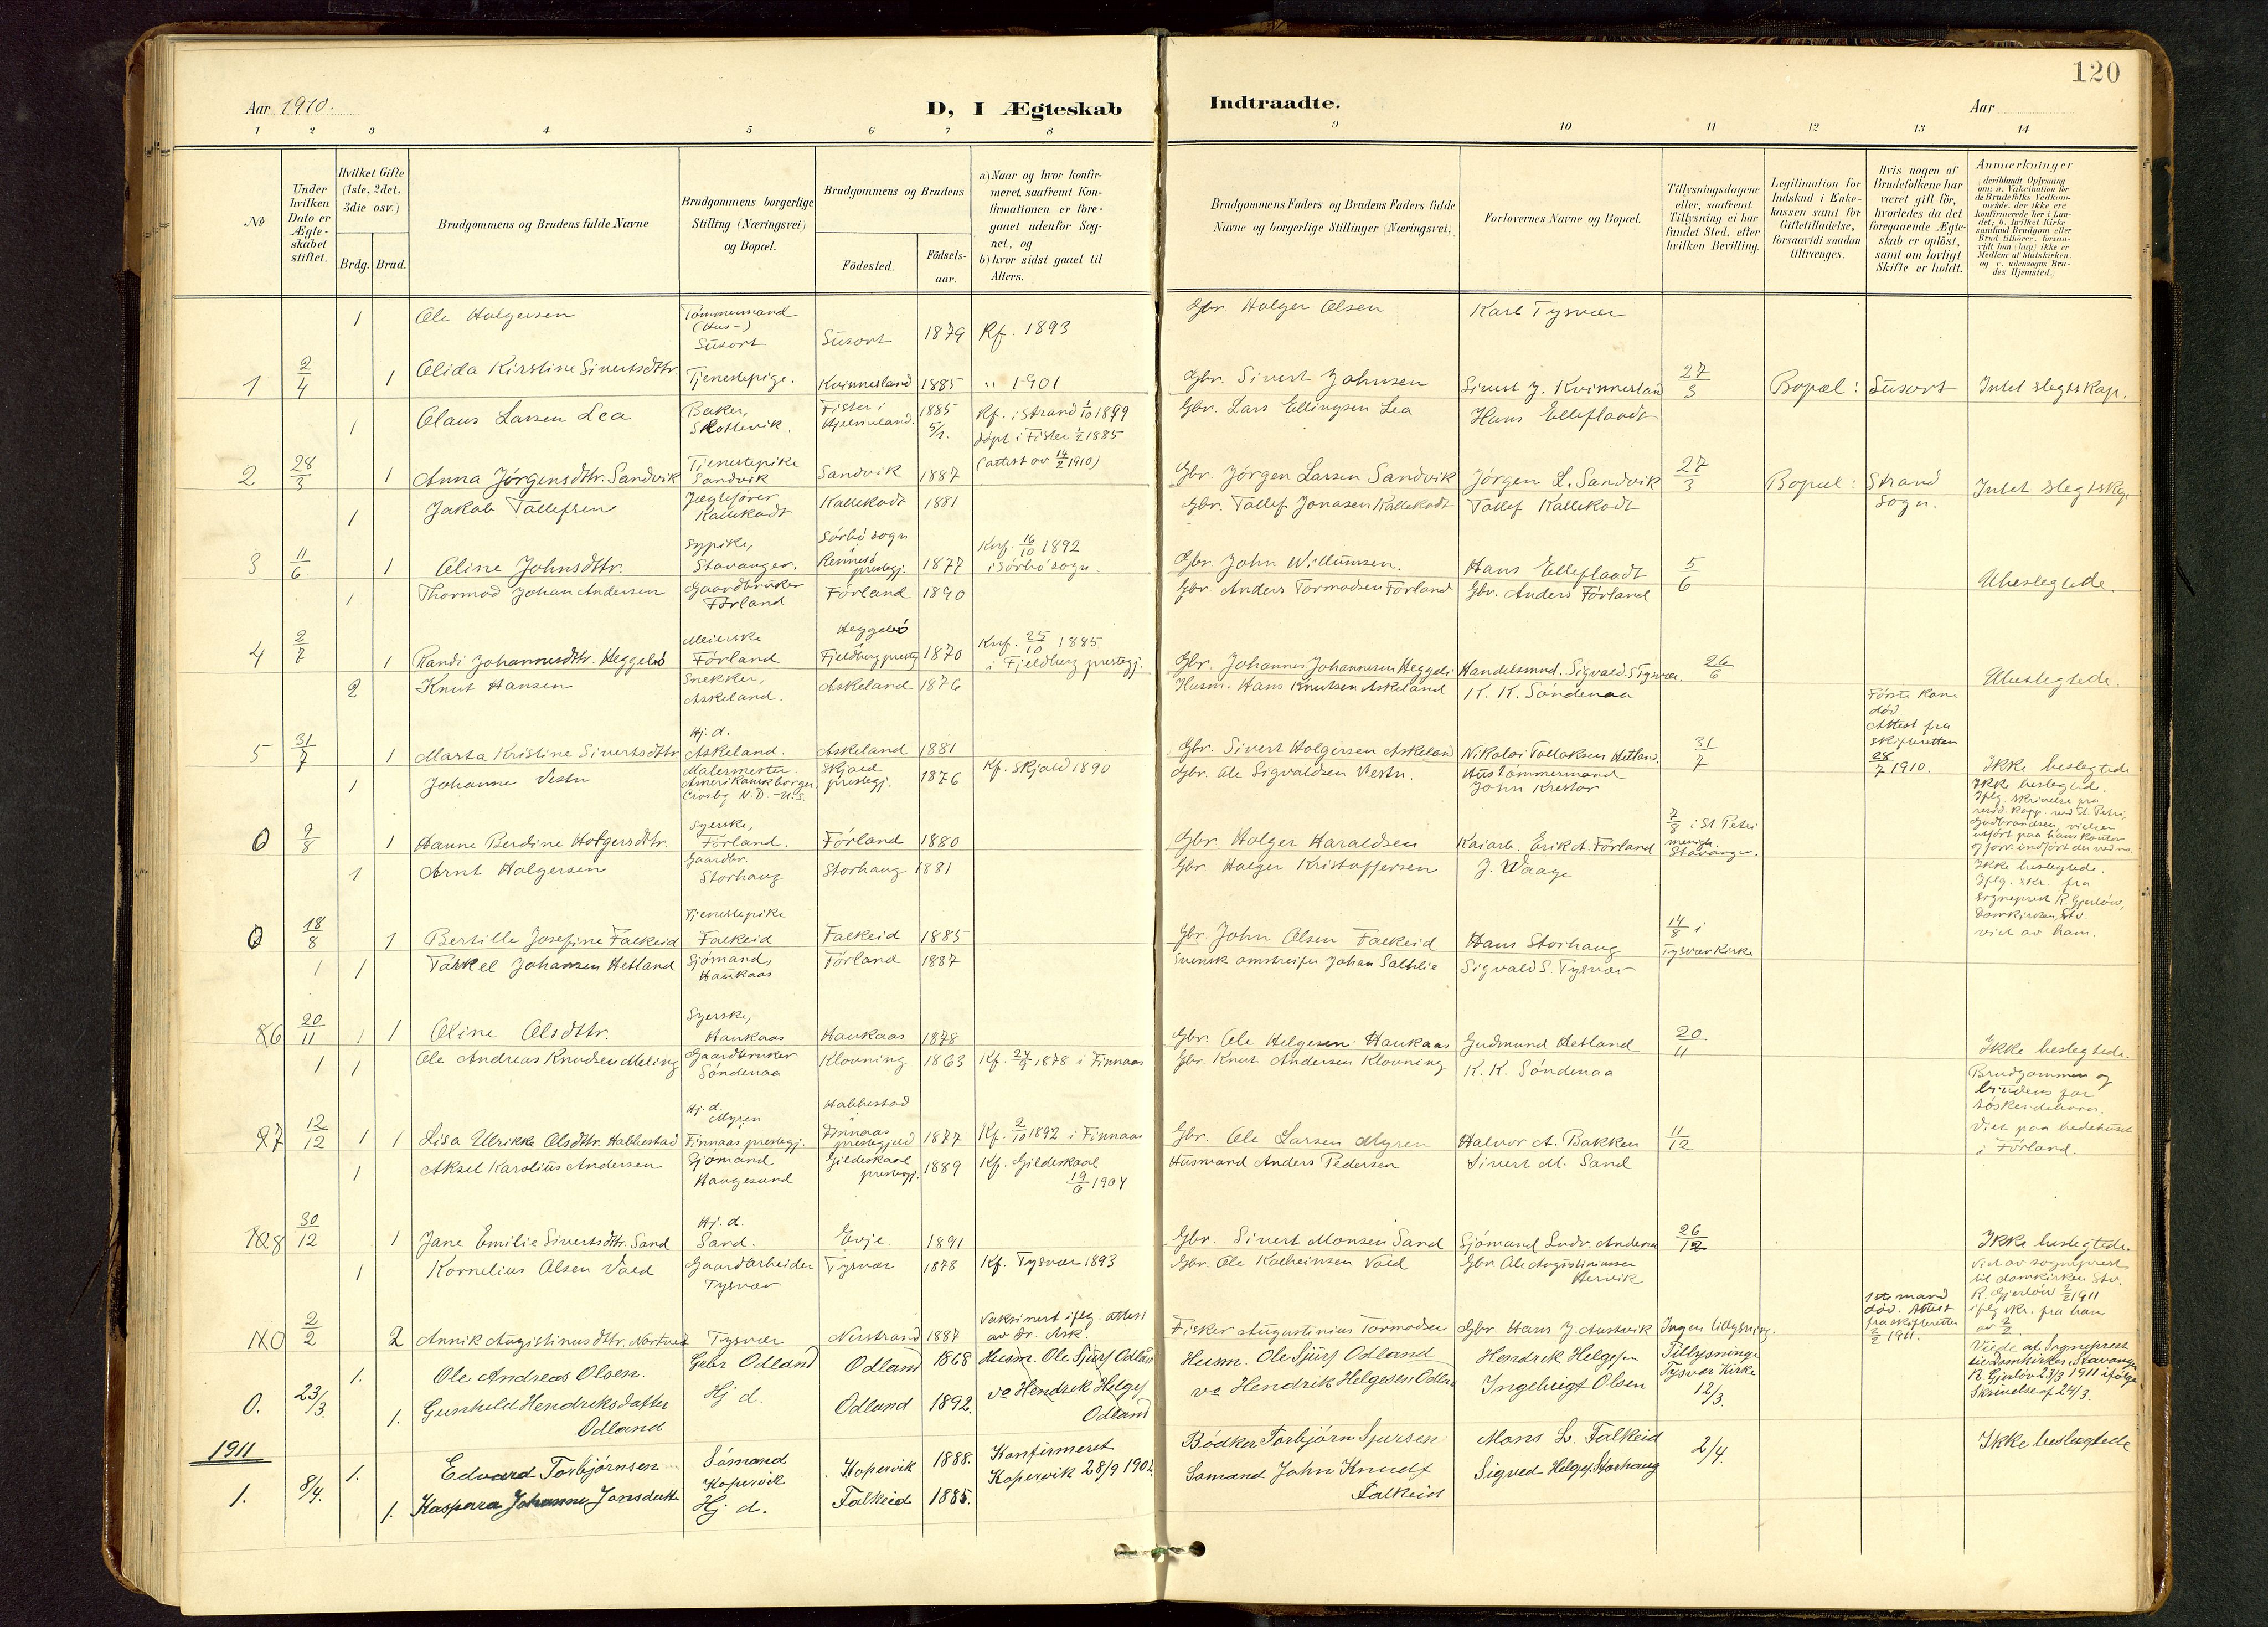 120
Aar 1910.
D, I Ægteskab Indtraadte.
Aar
1 2 3 4 5 6 7 8 9 10 11 12 13 14
No
Under hvilken Dato er Ægteskabet stiftet.
Hvilket Gifte (1ste, 2det, 3die osv.)
Brdg. Brud.
Brudgommens og Brudens fulde Navne
Brudgommens borgerlige Stilling (Næringsvei) og Bopæl.
Brudgommens og Brudens
Födested. Födsels-aar.
a) Naar og hvor konfir-
meret, saafremt Kon-
firmationen er fore-
gaaet udenfor Sog-
net, og
b) hvor sidst gaaet til
Alters.
Brudgommens Faders og Brudens Faders fulde
Navne og borgerlige Stillinger (Næringsvei).
Forlovernes Navne og Bopæl.
Tillysningsdagene
eller, saafremt
Tillysning ei har
fundet Sted, efter
hvilken Bevilling.
Legitimation for
Indskud i Enke-
kassen samt for
Giftetilladelse,
forsaavidt saadan
tiltrænges.
Hvis nogen af
Brudefolkene har
været gift før,
hvorledes da det
foregaaende Ægte-
skab er opløst,
samt om lovligt
Skifte er holdt.
Anmerkninger
(deriblandt Oplysning
om: a. Vakcination for
de Brudefolks Vedkom-
mende, der ikke ere
konfirmerede her i Lan-
det; b. hvilket Kirke
samfund Brudgom eller
Brud tilhører, forsaa-
vidt han (hun) ikke er
Medlem af Statskirken.
og c. udensogns Bru-
des Hjemsted.)
1 Ole Holgersen Tømmermand (Hus-) Susort Susort 1879 Kf. 1893 Gbr. Holger Olsen Karl Tysvær
1 2/4 1 Olida Kirstine Sivertsdttr. Tjenestepige. Kvinnesland 1885 " 1901 Gbr. Sivert Johnsen Sivert J. Kvinnesland 27/3 Bopæl: Susort Intet slegtskap.
1 Claus Larsen Lea Baker, Skottevik. Fister i Hjelmeland. 1885 5/1. Kf. i Strand 1/10 1899 døpt i Fister 1/2 1885 Gbr. Lars Ellingsen Lea Hans Elleflaadt
2 28/3 1 Anna Jørgensdttr. Sandvik Tjenestepike Sandvik Sandvik 1887 (attest av 14/2 1910) Gbr. Jørgen Larsen Sandvik Jørgen L. Sandvik 27/3 Bopæl: Strand Sogn. Intet slegtskap
1 Jakob Tollefsen Jægtefører Kallekodt Kallekodt 1881 Gbr. Tollef Jonasen Kallekodt Tollef Kallekodt
3 11/6 1 Oline Johnsdttr. Sypike, Stavanger. Sørbø sogn i Rennesø prestegj. 1877 Knf. 16/10 1892 i Sørbø sogn. Gbr. John Willumsen. Hans Elleflaadt 5/6 Ubeslegtede.
1 Thormod Johan Andersen Gaardbruker Førland Førland 1890 Gbr. Anders Tormodsen Førland Gbr. Anders Førland
4 2/7 1 Randi Johannesdttr. Heggebø Meierske Førland Heggebø i Fjeldberg presteg 1870 Knf. 25/10 1885 i Fjeldberg prestegj. Gbr. Johannes Johannesen Heggebø Handelsmnd. Sigvald S Tysvær. 26/6 Ubeslegtede.
2 Knut Hansen Snekker, Askeland. Askeland 1876 Husm. Hans Knutsen Askeland K. K. Søndenaa Første Kone død. Attest fra skifteretten 28/7 1910.
5 31/7 1 Marta Kristine Sivertsdttr. Hj. d. Askeland. Askeland 1881 Gbr. Sivert Holgersen Askeland Nikolai Tollaksen Hetland. 31/7 Ikke beslegtede
1 Johanne Vestn Malermester. Amerikansk borger Crosby N. D. - U. S. Skjold prestegj. 1876 Kf. Skjold 1890 Gbr. Ole Sigvaldsen Vestn. Hustømmermand John Krestor Ikke beslegtede. Iflg. skrivelse fra resid. kapp. ved St. Petri, Gudbrandsen, vielsen utført paa hans kontor
0 9/8 1 Hanne Berdine Holgersdttr. Syerske, Førland. Førland 1880 Gbr. Holger Haraldsen Kaiarb. Erik A. Førland 7/8 i St. Petri menigh. Stavanger.
1 Arnt Holgersen Gaardbr. Storhaug Storhaug 1881 Gbr. Holger Kristoffersen J. Waage Ikke beslegtede. Iflg. skr. fra Sogneprest R. Gjerløw, Domkirken, Stv. viet av ham.
0 18/8 1 Bertille Josefine Falkeid Tjenestepike Falkeid Falkeid 1885 Gbr. John Olsen Falkeid Hans Storhaug 14/8 i Tysvær Kirke
1 1 Torkel Johansen Hetland Sjømand, Haukaas Førland 1887 Svensk omstreifer Johan Salthlie Sigvald S. Tysvær
6 20/11 1 1 Oline Olsdttr. Syerske, Haukaas Haukaas 1878 Gbr. Ole Helgesen Haukaas Gudmund Hetland 20/11 Ikke beslegtede.
1 1 Ole Andreas Knudsen Meling Gaardbruker Søndenaa Klovning 1863 Kf. 27/9 1878 i Finnaas Gbr. Knut Andersen Klovning K. K. Søndenaa Brudgommen og brudens far søskendebarn. Viet paa bedehuset i Førland.
7 12/12 1 1 Lisa Ulrikke Olsdttr. Habbestad Hj. d. Myren Finnaas prestegj. Habbestad i Finnaas prestegjeld 1877 Kf. 2/10 1892 i Finnaas Gbr. Ole Larsen Myren Halvor A. Bakken 11/12
1 Aksel Karolius Andersen Sjømand Haugesund Gildeskaal prestegj. 1889 Kf. Gildeskaal 19/6 1904 Husmand Anders Pedersen Sivert M. Sand
8 30/12 1 Jane Emilie Sivertsdttr. Sand Hj. d. Sand. Evje. 1891 Gbr. Sivert Monsen Sand Sjømand Ludv. Andersen 26/12 Ikke beslegtede.
1 Kornelius Olsen Vold Gaardarbeider Tysvær Tysvær 1878 Kf. Tysvær 1893 Gbr. Ole Kathrinsen Vold Gbr. Ole Augistiniussen Hervik Viet av sogneprest til domkirken Stv. R. Gjerløw 2/2 1911 iflg skr. fra ham av 2/2
0 2/2 2 Annik Augistinusdttr. Nortved Tysvær Nerstrand 1887 Vaksinert iflg. attest av dr. Ask. Fisker Augustinius Tormodsen Gbr. Hans J. Austvik Ingen tillysning. 1ste mand død. Attest fra skifteretten 2/2 1911.
1. Ole Andreas Olsen. Gabr Odland Odland 1868 Husm. Ole Sjurs Odland Husm. Ole Sjurs Odland Hendrik Helgesen Tillysning i Tysvær Kirke 12/3. Viede af Sogneprest til Domkirken, Stavanger R. Gjerløv 23/3 1911 ifølge Skrivelse af 24/3.
0. 23/3. 1. Gunhild Hendriksdatter Odland Hj d. Odland 1892. va Hendrik Helges Odland va Hendrik Helgesen Odland Ingebrigt Olsen
1911
1. Edvard Torbjørnsen Sømand Kopervik Kopervik 1888. Konfirmeret Kopervik 28/9 1902 Bødker Torbjørn Sjursen Mons L. Falkeid 2/4. Ikke beslegtede
1. 8/4. 1. Kaspara Johanne Jonsdatter Hj. d. Falkeid 1885. Sømand John Knuds Falkeid Sigved Helges. Storhaug